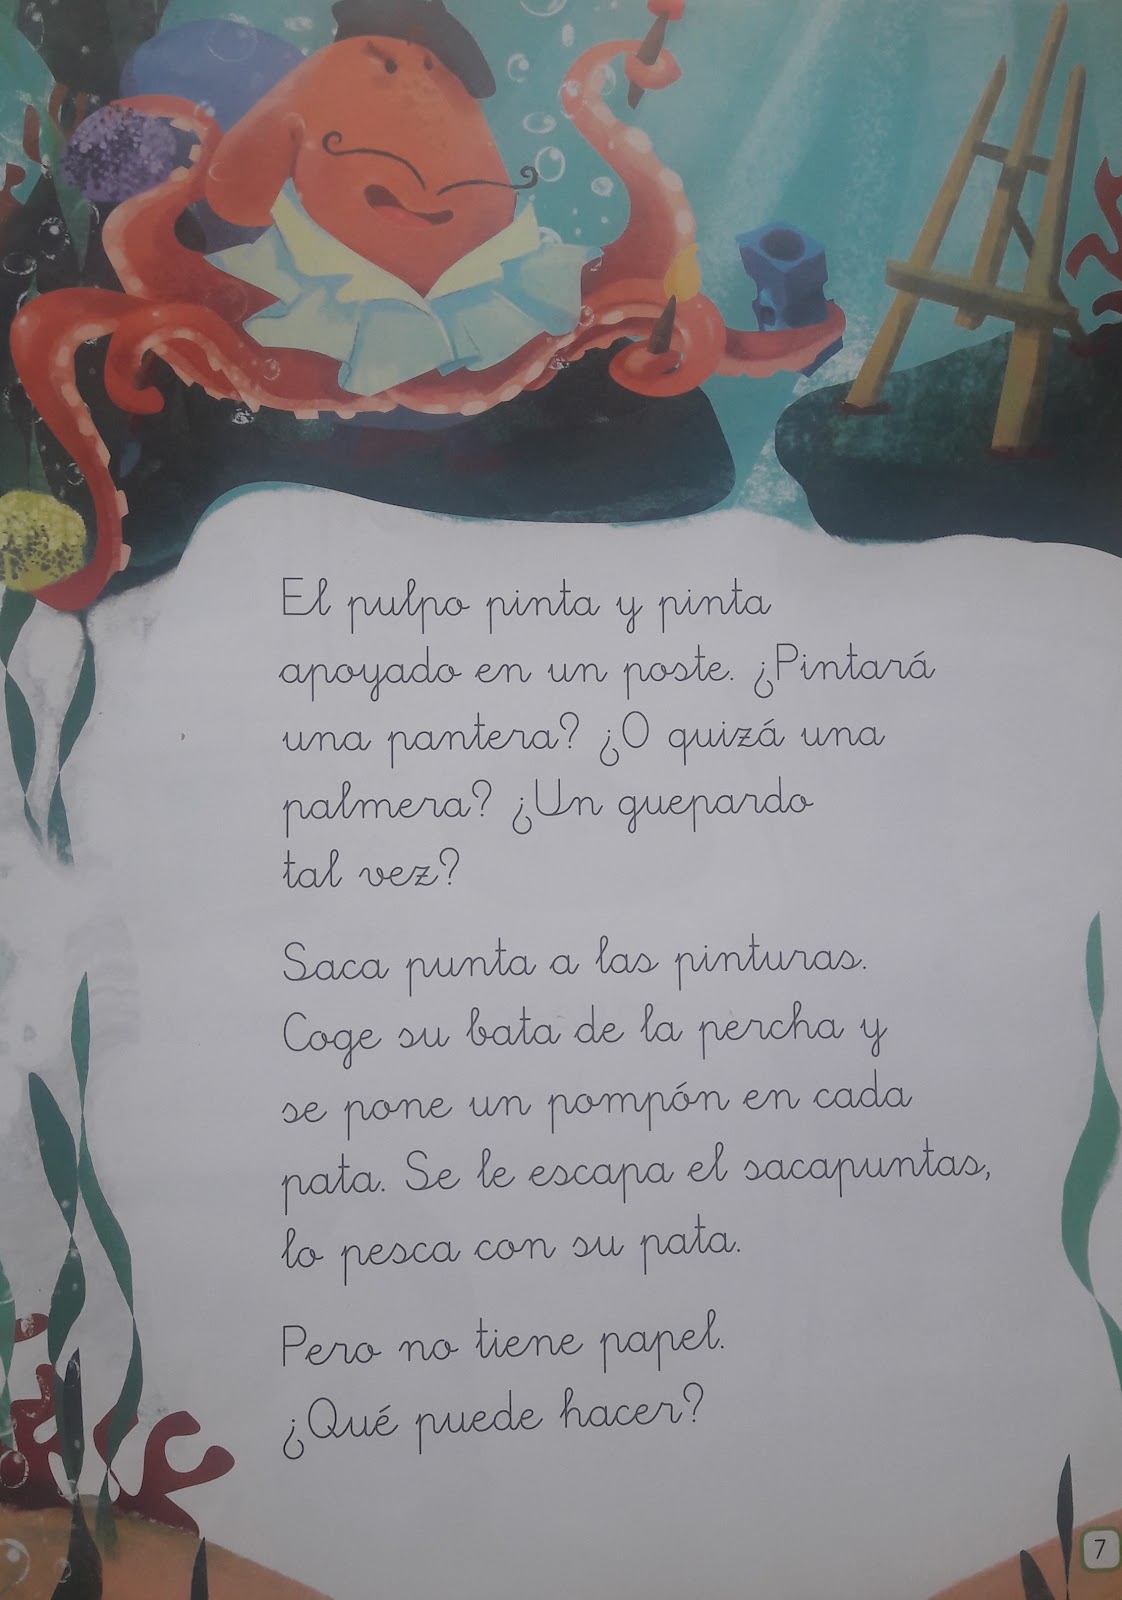 El pulpo pinta y pinta
apoyado en un poste. ¿Pintará
una pantera? ¿O quizá una
palmera? ¿Un guepardo
tal vez?
Saca punta a las pinturas.
Coge su bata de la percha y
se pone un pompón en cada
pata. Se le escapa el sacapuntas,
lo pesca con su pata.
Pero no tiene papel.
¿Qué puede hacer?
7